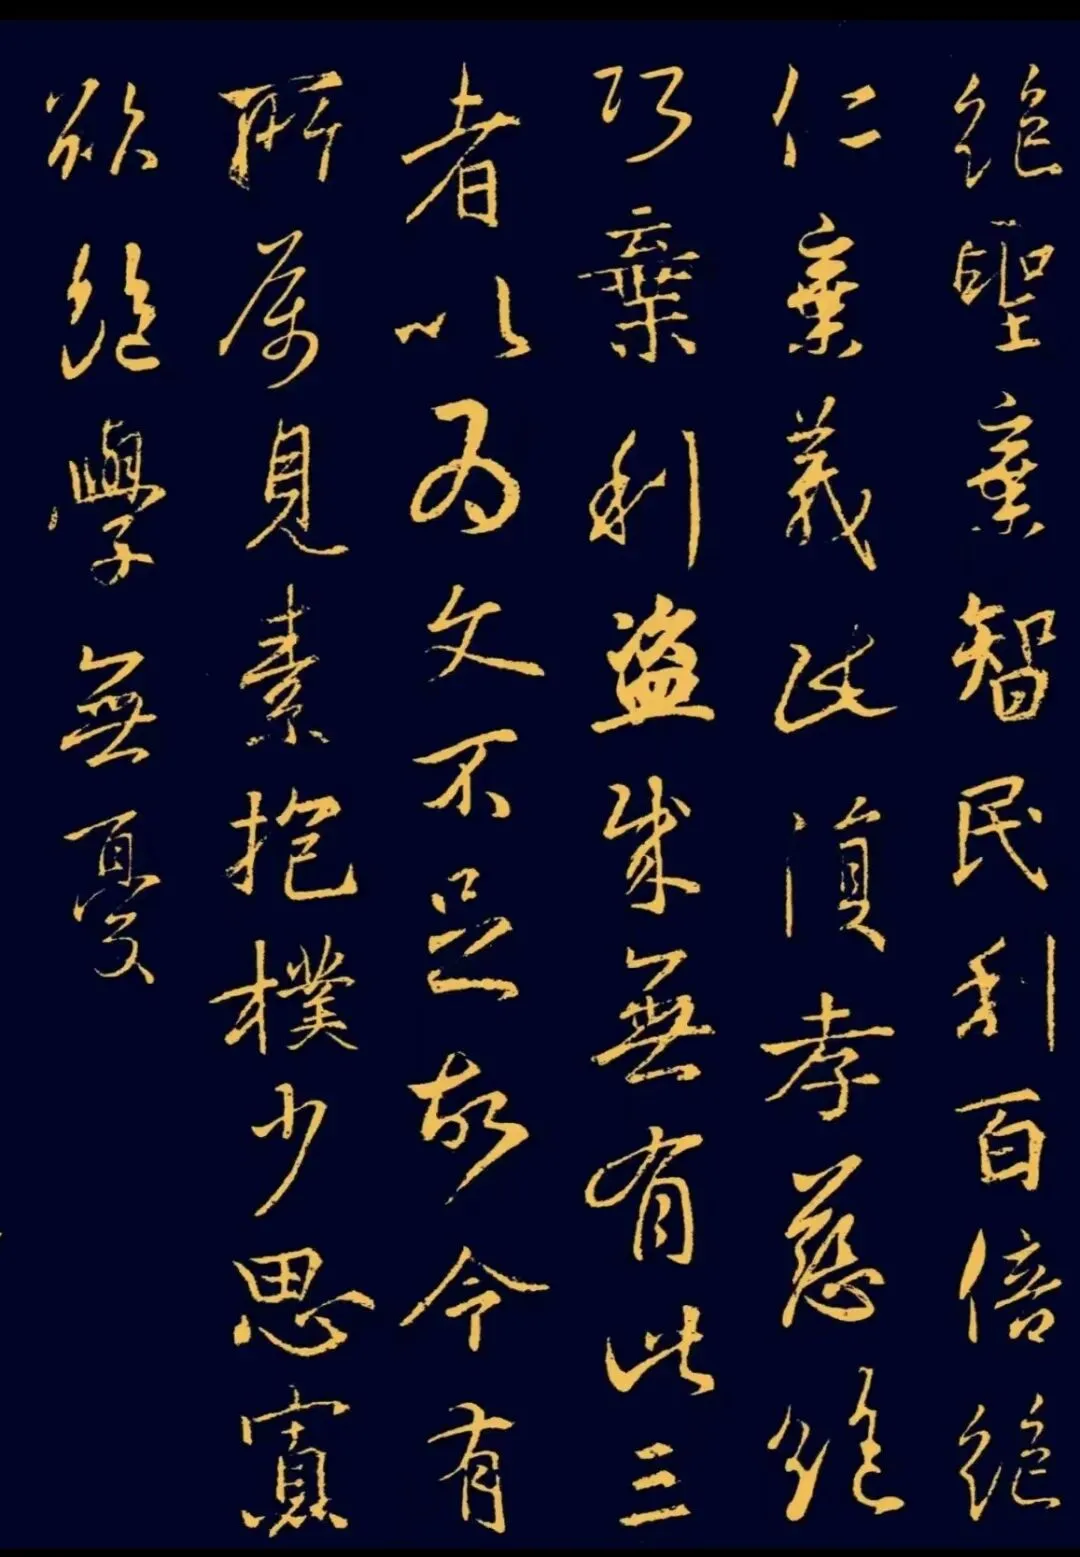 絕聖棄智民利百倍絕
仁棄義民復孝慈絕
巧棄利盜賊無有此三
者以為文不足故令有
所屬見素抱樸少思寡
欲絕學無憂